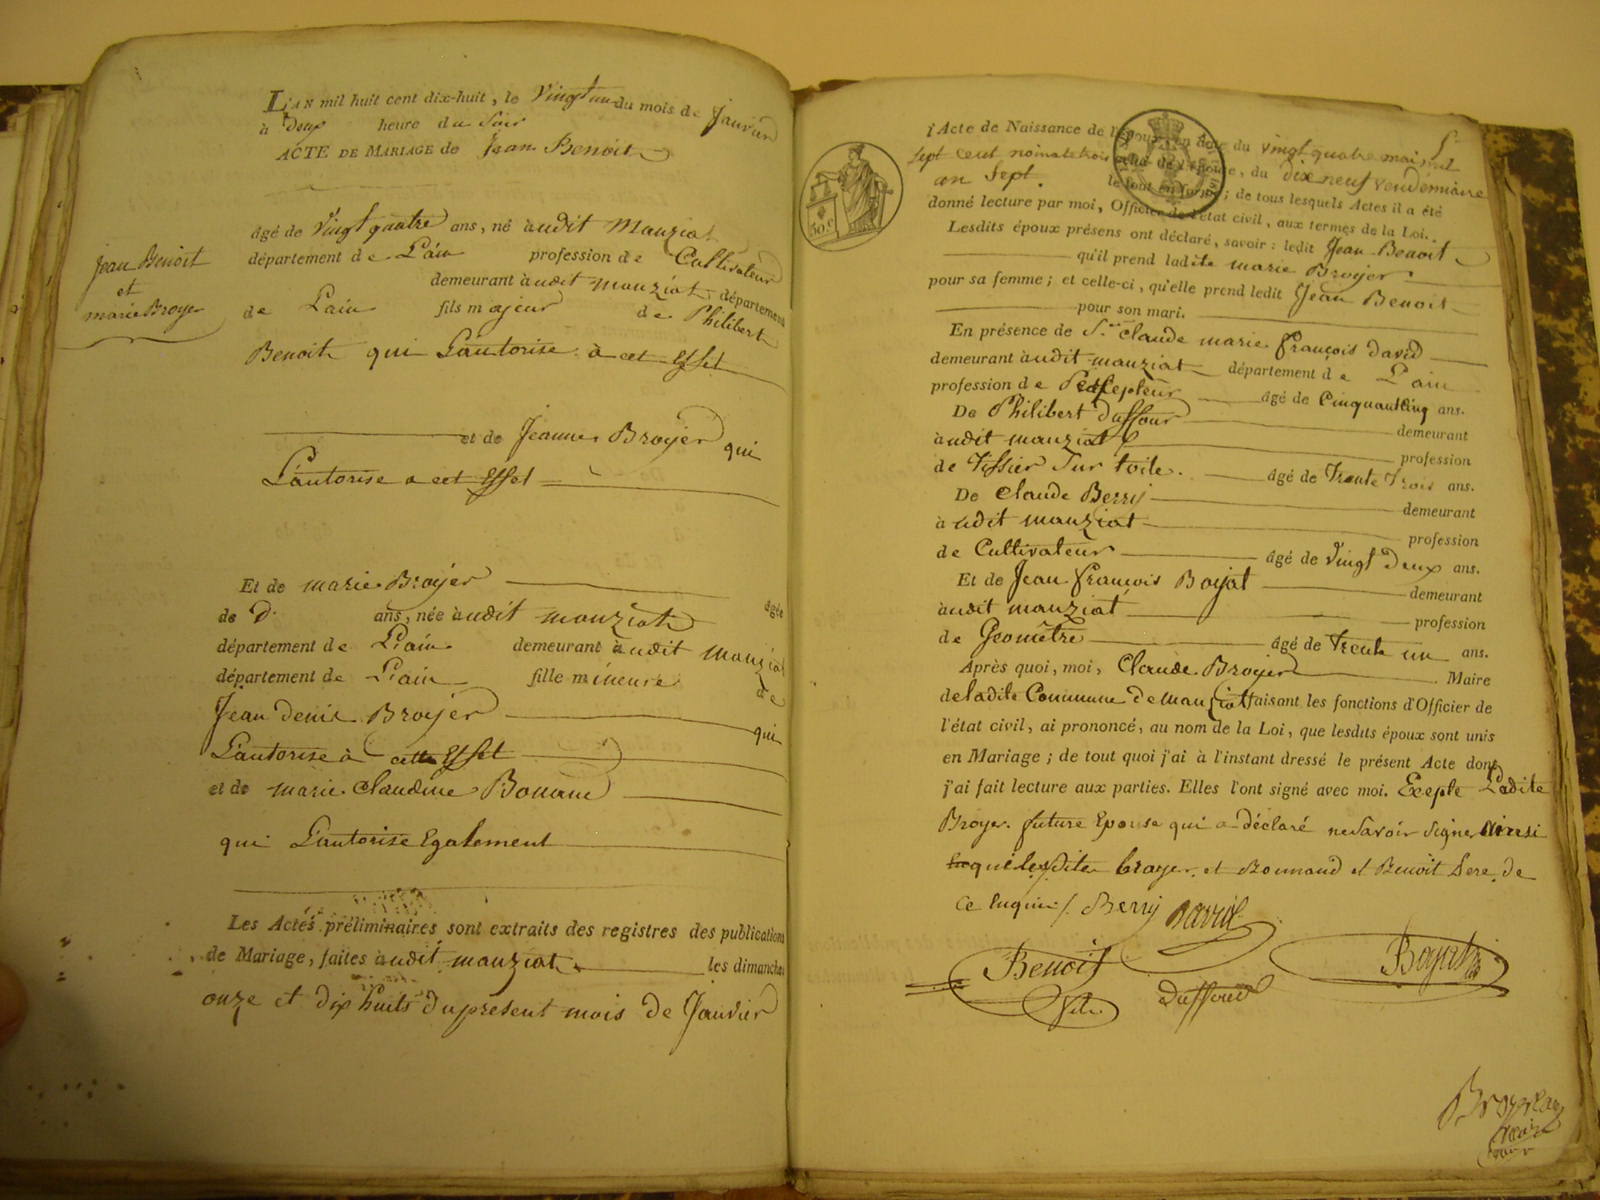 L'AN mil huit cent dix-huit, le Vingt un du mois de Janvier
à Deux heure du Soir
ACTE DE MARIAGE de Jean Benoit
Jean Benoit
et
marie Broyer
âgé de Vingt quatre ans, né audit Manziat
département de L'ain profession de Cultivateur
demeurant audit manziat département
de L'ain fils majeur de Philibert
Benoit qui L'autorise a cet Effet
et de Jeanne Broyer qui
L'autorise a cet Effet
Et de marie Broyer âgée
de D. ans, née audit manziat
département de L'ain demeurant audit manziat
département de L'ain fille mineure de
Jean denis Broyer qui
L'autorise à cette Effet
et de marie Claudine
qui L'autorise Egalement
Les Actes préliminaires sont extraits des registres des publications
de Mariage, faites audit manziat les dimanches
onze et dix huits du présent mois de Janvier
50 c
l'Acte de Naissance de l'Epoux, en date du vingt quatre mai mil
Sept cent celui de l'Epouse, du dix neuf vendemiaire
an Sept. le tout en forme; de tous lesquels Actes il a été
donné lecture par moi, Officier de l'état civil, aux termes de la Loi.
Lesdits époux présens ont déclaré, savoir: ledit Jean Benoit
qu'il prend ladite marie Broyer
pour sa femme; et celle-ci, qu'elle prend ledit Jean Benoit
pour son mari.
En présence de S.r Claude marie françois david
demeurant audit manziat département de L'ain
profession de âgé de Cinquante Cinq ans.
De Philibert duffour demeurant
audit manziat profession
de Tissier Sur toile. âgé de Trente Trois ans.
De Claude Berry demeurant
audit manziat profession
de Cultivateur âgé de Vingt Deux ans.
Et de Jean françois Boyat demeurant
audit manziat profession
de Geomètre âgé de Trente un ans.
Après quoi, moi, Claude Broyer Maire
de ladite Commune de manziat faisant les fonctions d'Officier de
l'état civil, ai prononcé, au nom de la Loi, que lesdits époux sont unis
en Mariage; de tout quoi j'ai à l'instant dressé le présent Acte dont
j'ai fait lecture aux parties. Elles l'ont signé avec moi. Exepte Ladite
Broyer future Epouse qui a déclaré ne Savoir Signer
que lesdites broyer et et Benoit Pere de
Ce Enquis /. Berry David
Benoit Boyat
fils Duffour
Broyer
maire